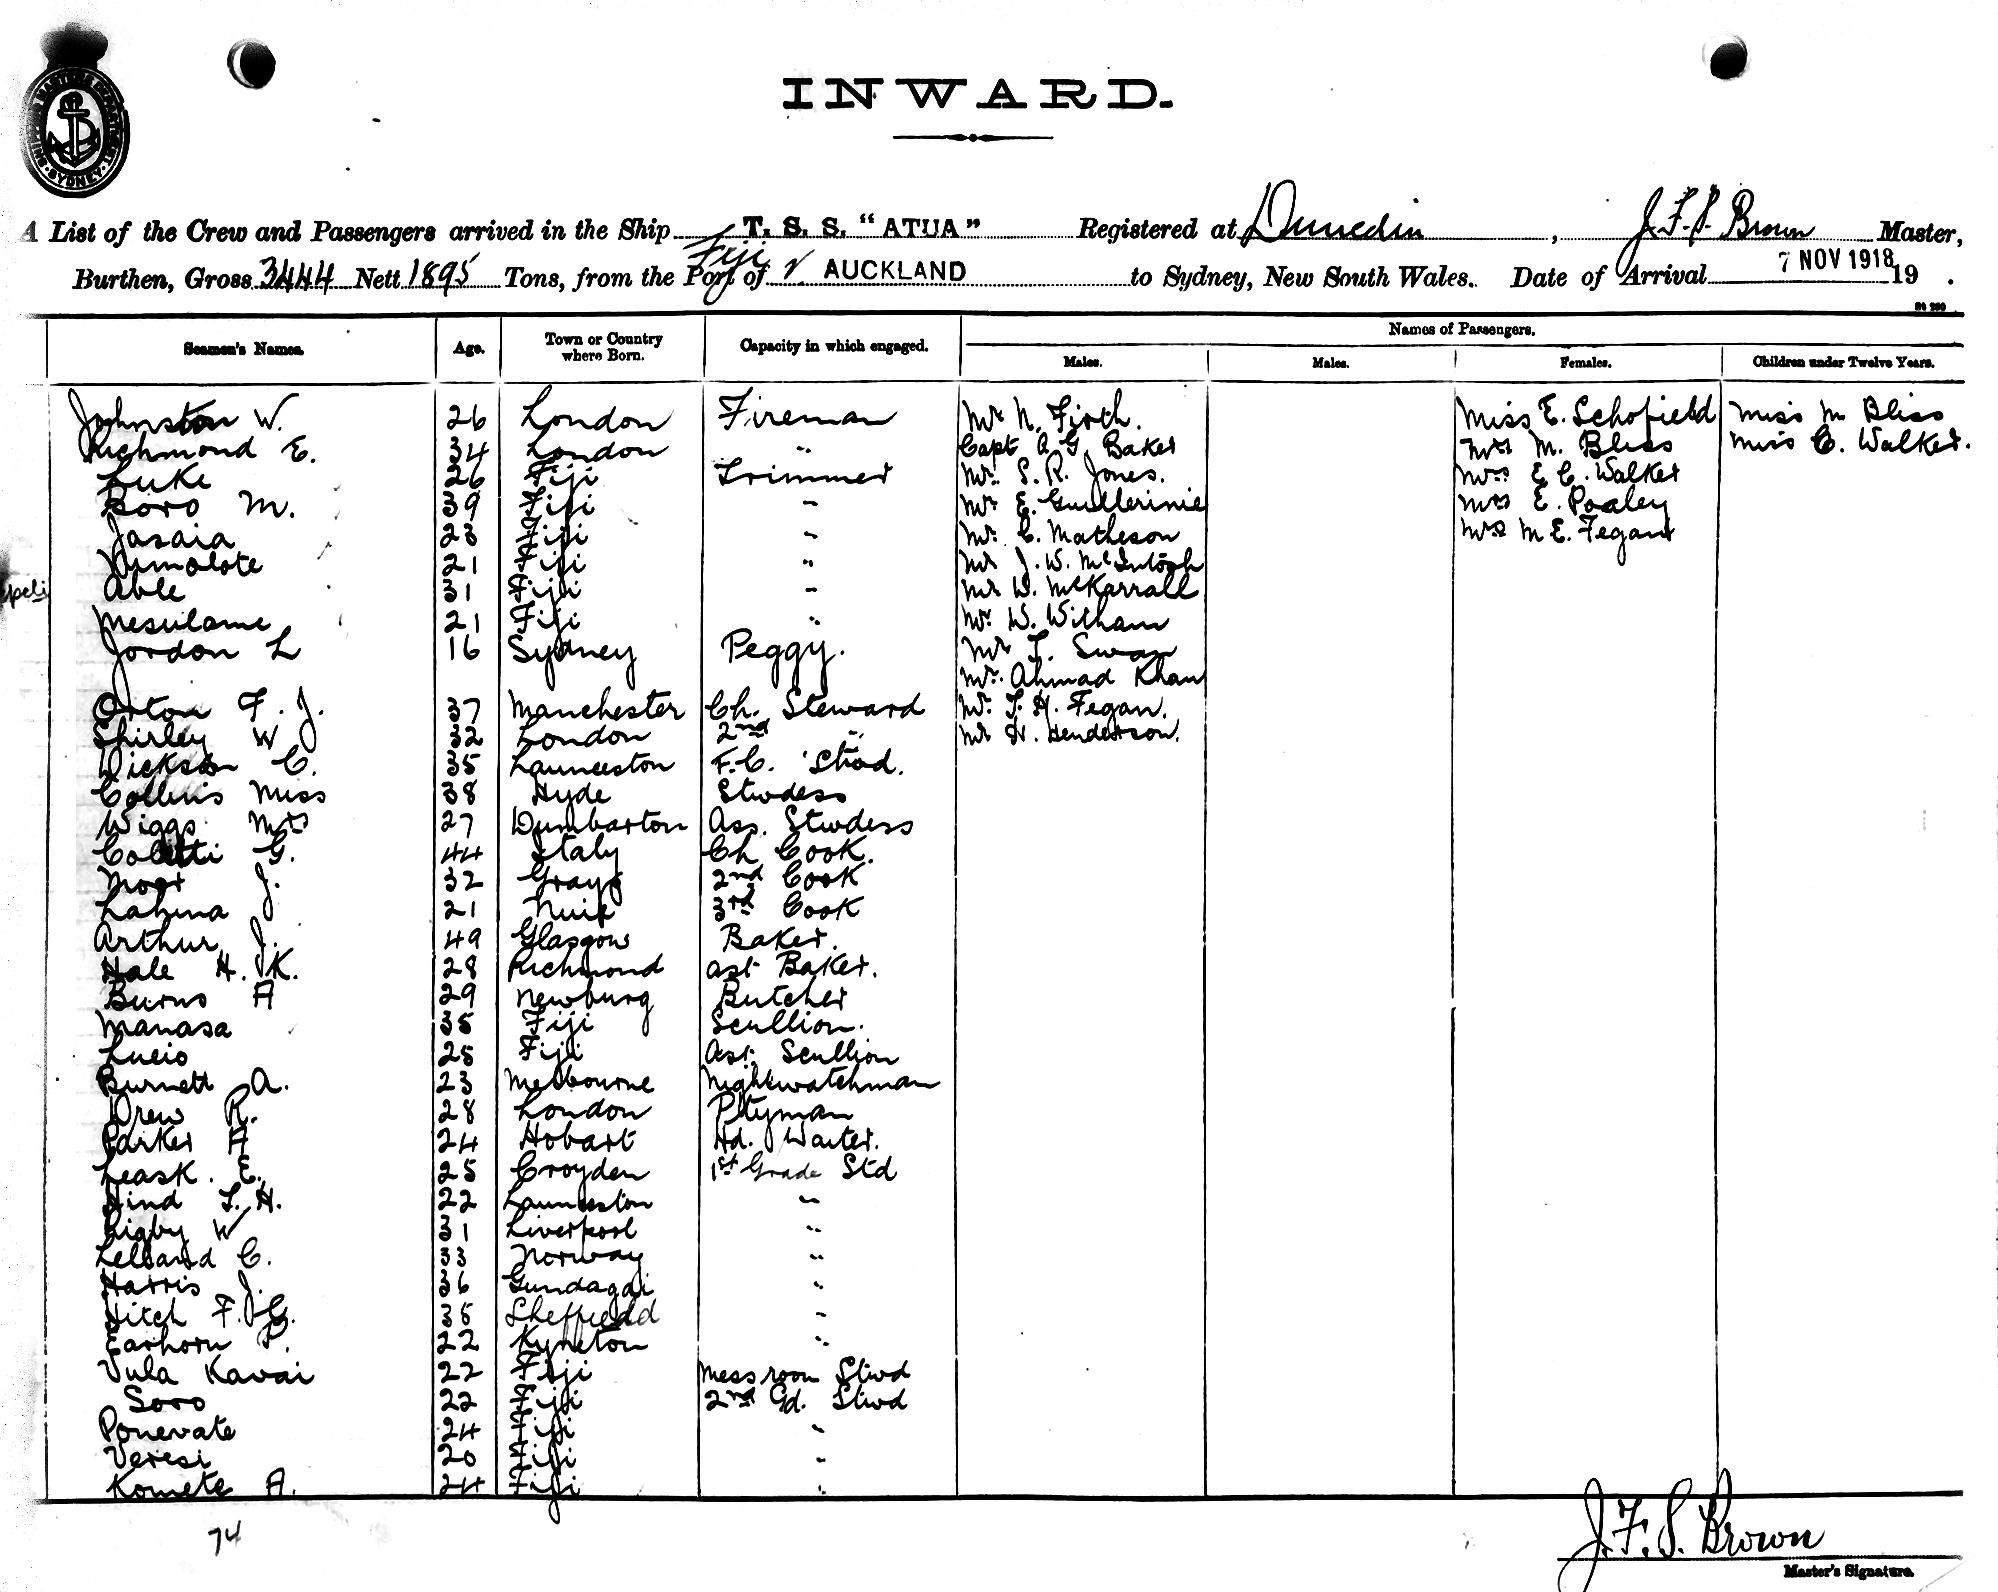 SHIPPING MASTERS DEPARTMENT SYDNEY
INWARD.
A List of the Crew and Passengers arrived in the Ship T. S. S. "ATUA" Registered at Dunedin, J. F. S. Brown Master,
Burthen, Gross 3444 Nett 1895 Tons, from the Port of Fiji v. AUCKLAND to Sydney, New South Wales. Date of Arrival 7 NOV 1918 19 .
Seamen's Names. Age. Town or Country where Born. Capacity in which engaged. Names of Passengers.
Males. Males. Females. Children under Twelve Years.
Johnston W. 26 London Fireman Mr N. Firth. Miss E. Schofield Miss M Bliss
Richmond E. 34 London " Capt A. G. Baker Mrs M. Bliss Miss C. Walker.
Luke 26 Fiji Trimmer Mr. S. R. Jones. Mrs E C. Walker
Boro M. 39 Fiji " Mr E. Guellerinie Mrs E. Poaley
Jasaia 23 Fiji " Mr. C. Matheson Mrs M E. Fegan
21 Fiji " Mr J. W. McIntosh
peli Able 31 Fiji " Mr W. McKarrall
Mesulame 21 Fiji " Mr. W. Witham
Jordon L 16 Sydney Peggy. Mr T. Swan
Mr. Ahmad Khan
Orton F. J. 37 Manchester Ch. Steward Mr. F. H. Fegan.
Shirley W 32 London 2nd " Mr H. Henderson.
Dickson C. 35 Launceston F.C. Stwd.
Collins Miss 38 Hyde Stwdess
Wiggs Mrs 27 Dumbarton Ass. Stwdess
Coletti G. 44 Italy Ch Cook.
Moor J. 32 Grays 2nd Cook
Lahina J 21 Nuie 3rd Cook
Arthur J. 49 Glasgow Baker.
Hale H. K. 28 Richmond ast Baker.
Burns A 29 Newburg Butcher
Manasa 35 Fiji Scullion.
Lucio 25 Fiji Ast. Scullion
Burnett A. 23 Melbourne Nightwatchman
Drew R. 28 London Ptyman
Parker A 24 Hobart Hd. Waiter.
Leask. E. 25 Croyden 1st Grade Std
Hind T. H. 22 Launceston "
Rigby W 31 Liverpool "
Lelland C. 33 Norway "
Harris J. 36 Gundagai "
Hitch F. G. 35 Sheffield "
Earhorn P. 22 Kyneton "
Vula Kavai 22 Fiji Messroom Stwd
Soro 22 Fiji 2nd Gd. Stwd
Ponevate 24 Fiji "
Veresi 20 Fiji "
Komete A. 24 Fiji "
74
J. F. S. Brown
Master's Signature.